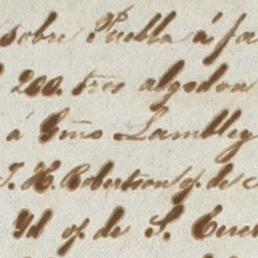 sobre Puebla á fa
200. tros algodon
á Gmo Lambley
T. H. Robertson of. de
Yd of. de S.